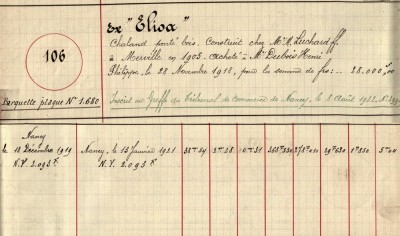 ex "Elioa"
106
Chaland ponté bois. Construit chez Mr A. Luchard ff.
à Merville en 1905. Acheté à Mr Delbois Henri
Philippe, le 28 Novembre 1918, pour la somme de frs: .. 28.000,00
Barquette plaque N° 1.680
Inscrit au Greffe du Tribunal de Commerce de Nancy, le 8 Août 1922. N°
Nancy
le 18 Décembre 1919
N.Y. 2.093 K
Nancy, le 13 Janvier 1921
N.Y. 2.093 K
38m54
5m04